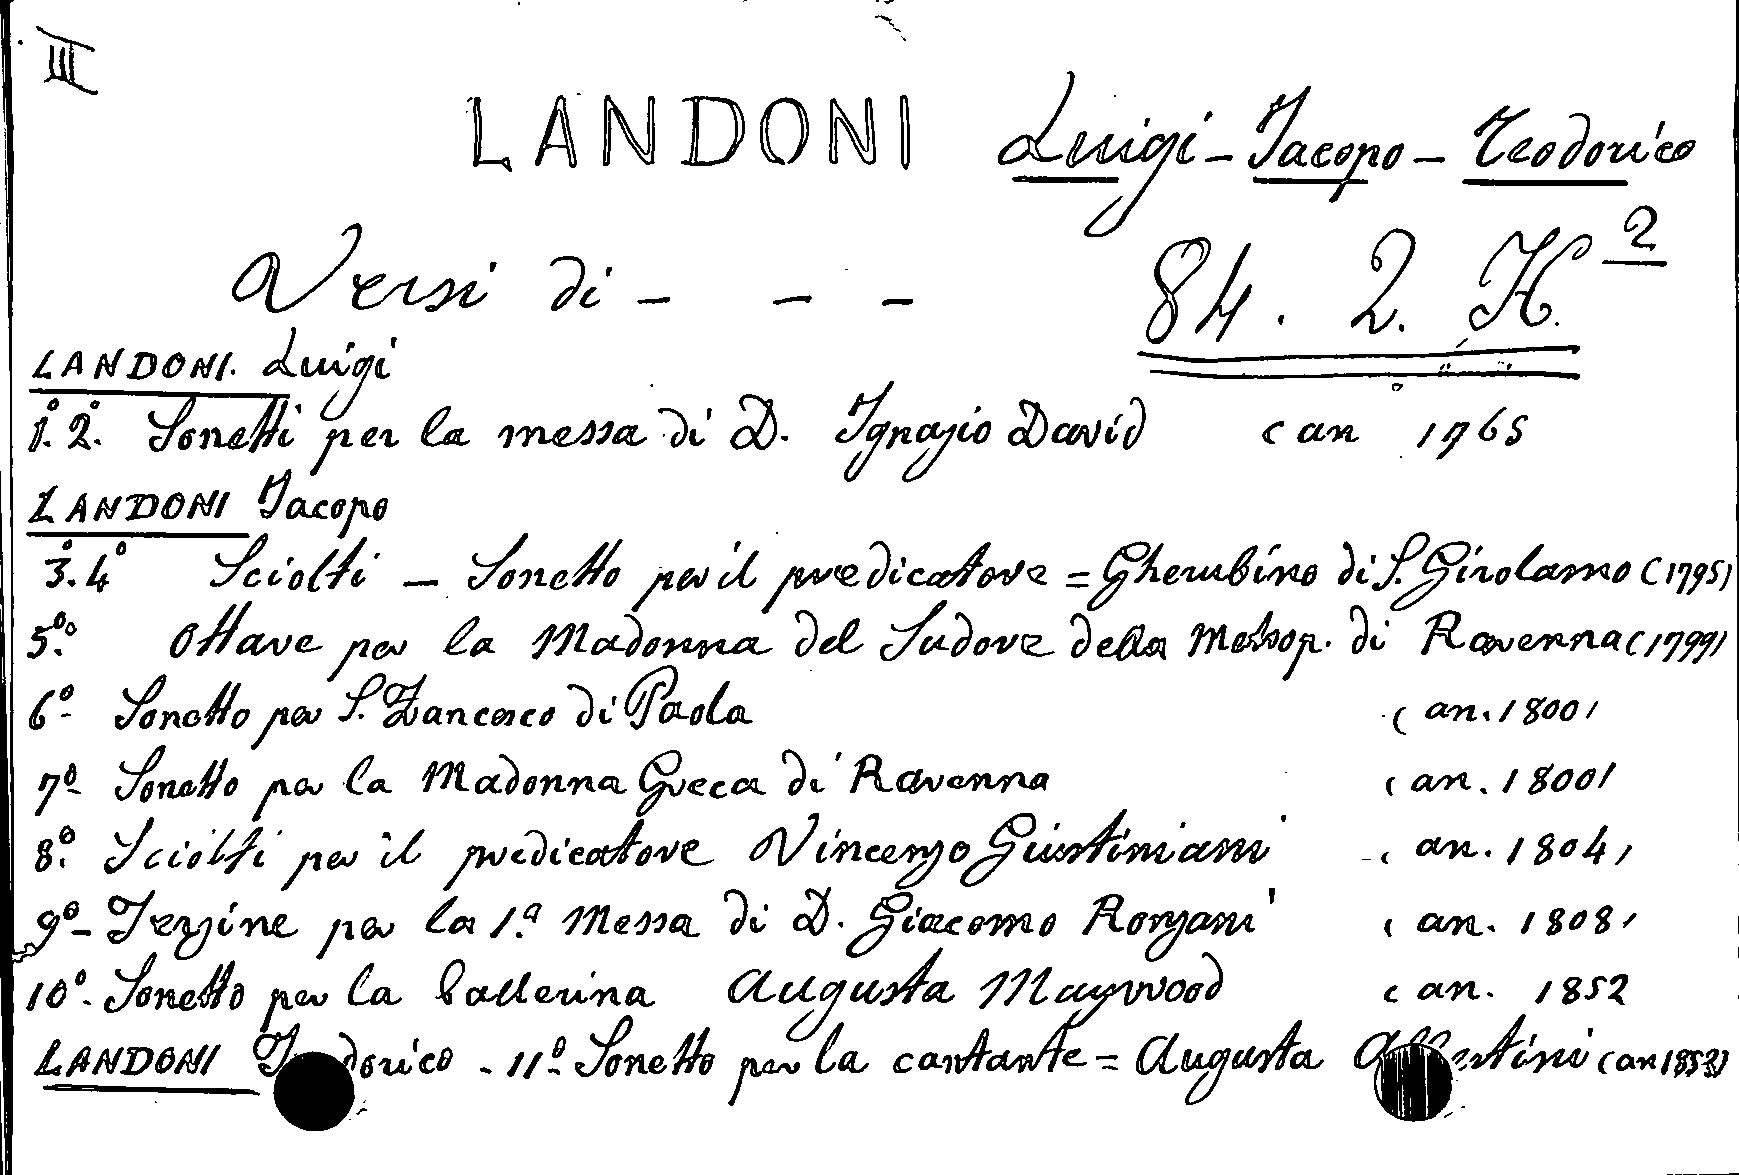 III
LANDONI Luigi - Jacopo - Teodorico
Versi di - - -
84. 2. H 2
LANDONI. Luigi
1.° 2.° Sonetti per la messa di D. Ignazio David ( an 1765
LANDONI Jacopo
3.° 4° Sciolti - Sonetto per il predicatore = Gherubino di S. Girolamo (1795)
5.° Ottave per la Madonna del Sudore della Metrop. di Ravenna (1799)
6° Sonetto per S. Francesco di Paola ( an. 1800)
7° Sonetto per la Madonna Greca di Ravenna ( an. 1800)
8° Sciolti per il predicatore Vincenzo Giustiniani ( an. 1804)
9° - Terzine per la 1.a Messa di D. Giacomo Ronzani ( an. 1808)
10° - Sonetto per la ballerina Augusta Maywood ( an. 1852
LANDONI Teodorico - 11° Sonetto per la cantante = Augusta Albertini (an 1853)